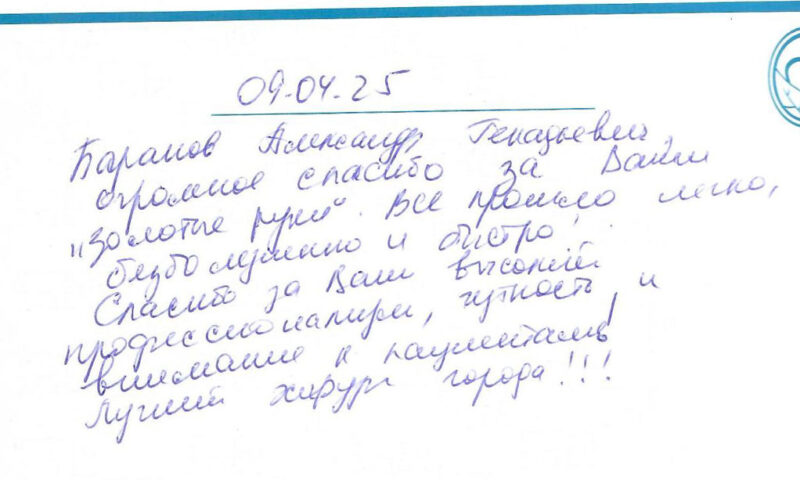 09.04.25
Баранов Александр Генадьевич,
огромное спасибо за Ваши
"золотые руки". Все прошло легко,
безболезненно и быстро!
Спасибо за Ваш высокий
профессионализм, чуткость, и
внимание к пациентам,
Лучший хирург города!!!